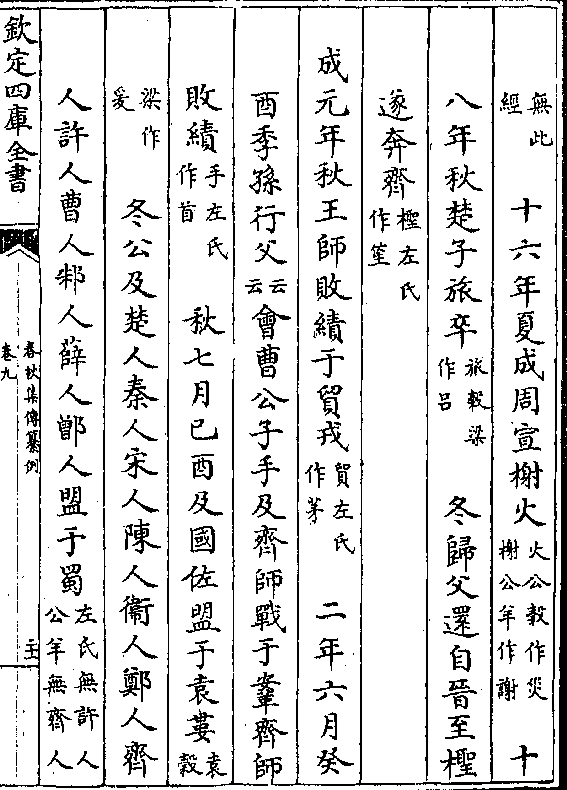 無此經　十六年夏成周宣榭火火公穀作災榭公羊作謝　十
八年秋楚子旅卒旅穀梁作呂　冬歸父還自晉至檉
遂奔齊檉左氏作笙
成元年秋王師敗績于貿戎貿左氏作茅　二年六月癸
酉季孫行父云云會曹公子手及齊師戰于鞏齊師
敗績手左氏作首　秋七月已酉及國佐盟于袁婁袁穀
梁作爰　冬公及楚人秦人宋人陳人衞人鄭人齊
人許人曹人邾人薛人鄫人盟于蜀左氏無許人公羊無齊人
欽定四庫全書
春秋集傳纂例
卷九